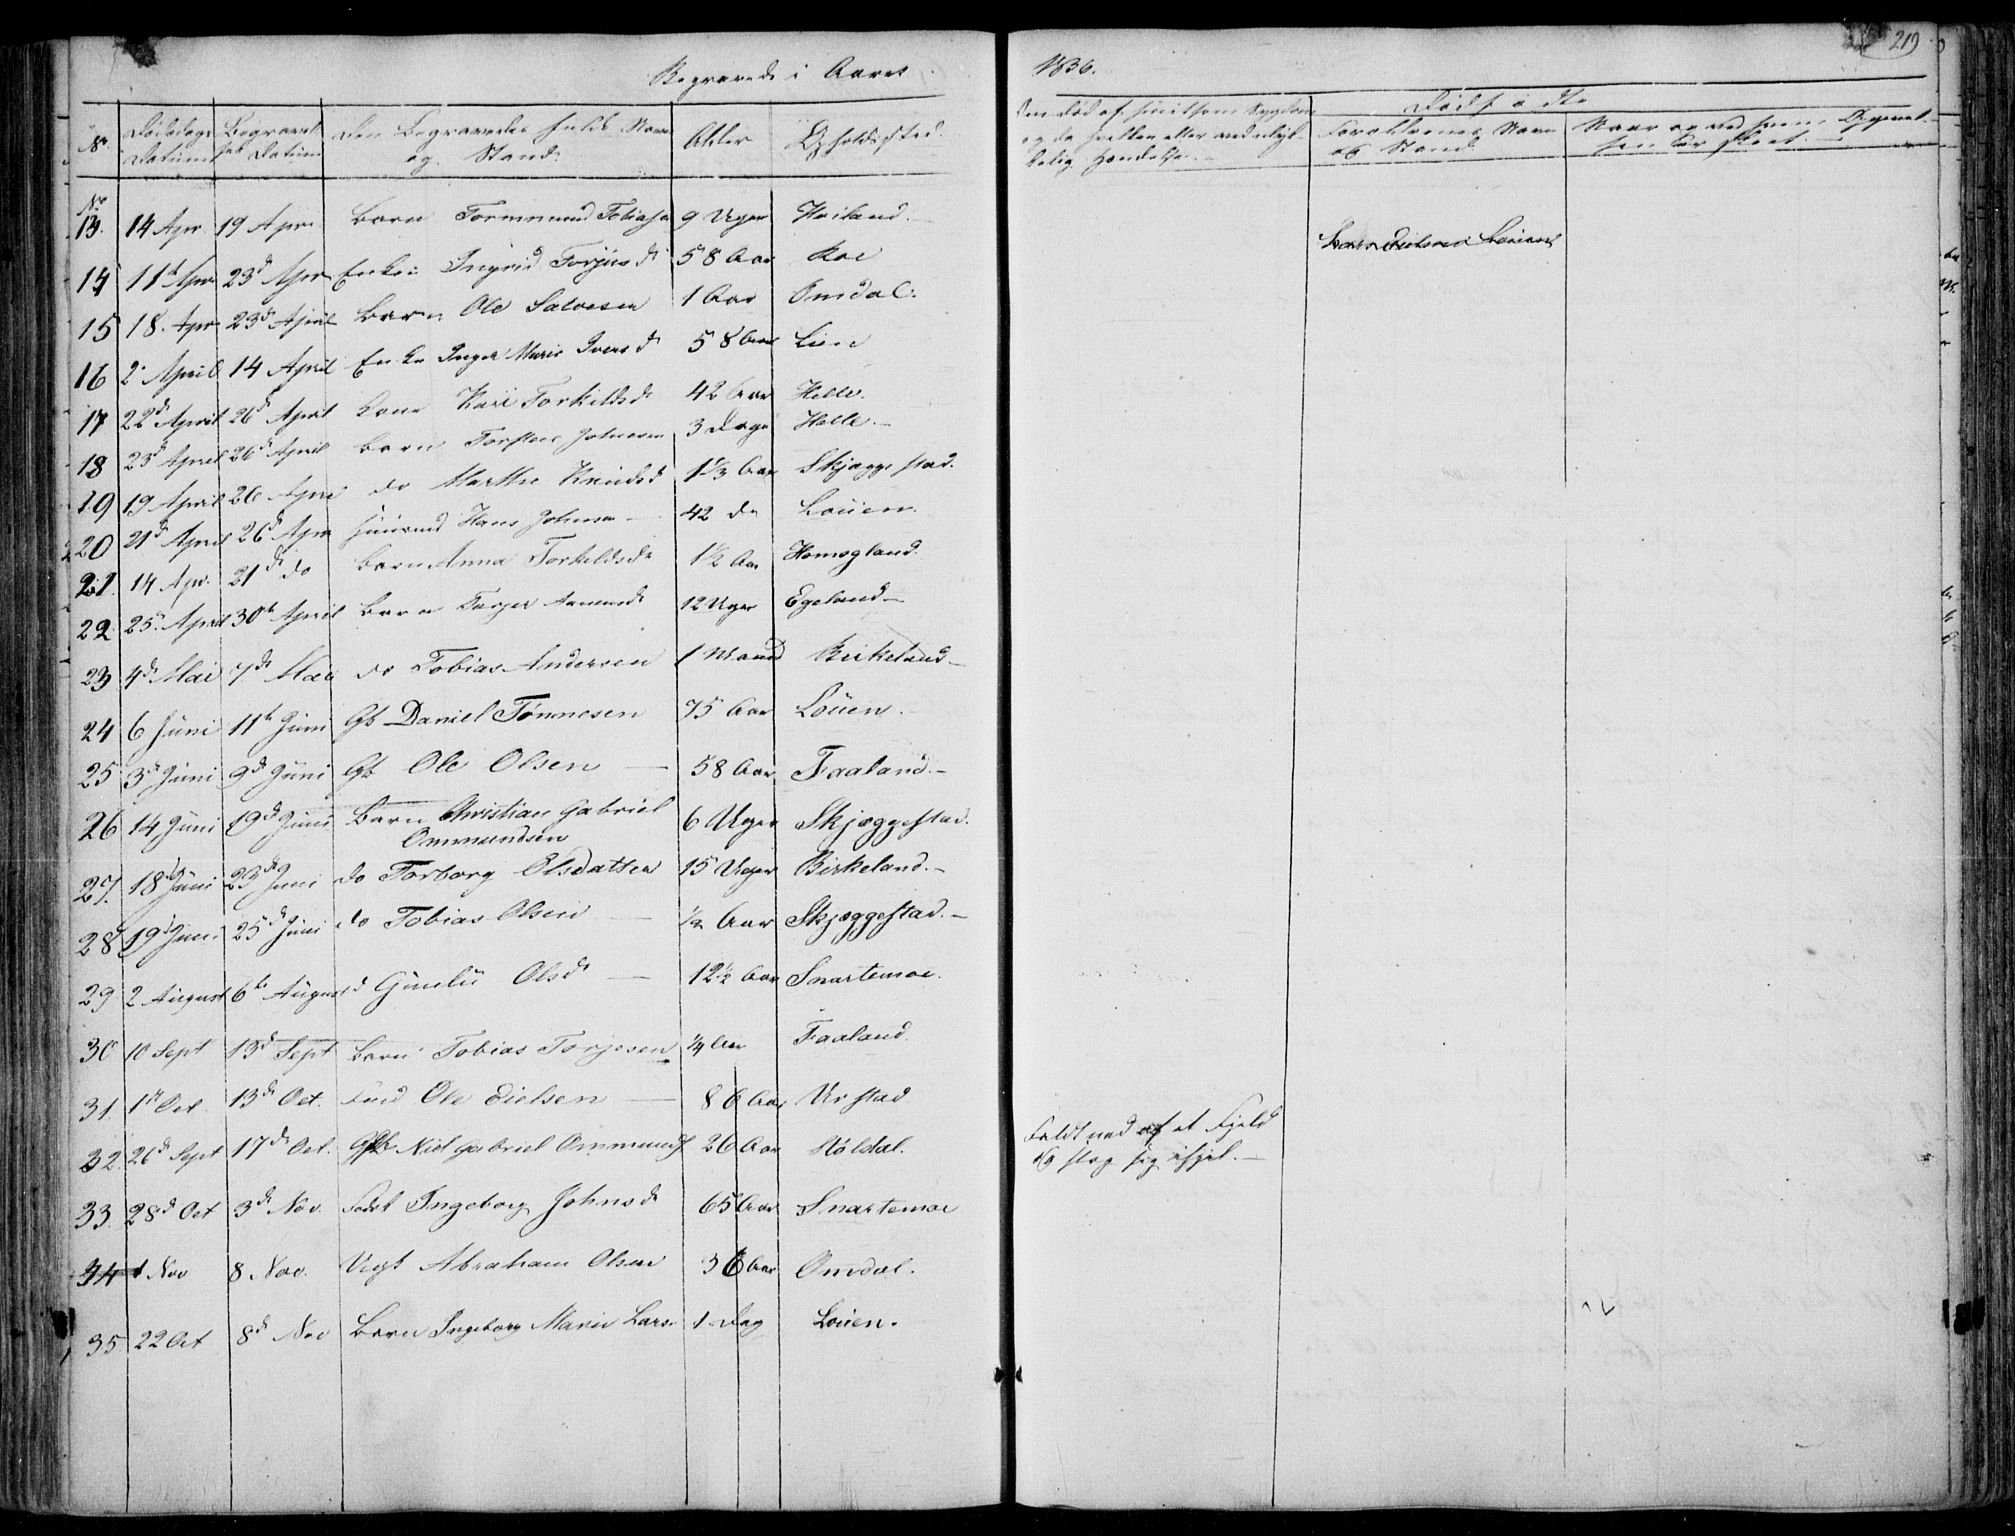 219
Begravede i Aaret 1836.
No. Dødsdags Datum Begravel- ses Datum Den Begravedes fulde Navn og Stand. Alder Opholdssted.
Om død af smitsom Sygdom og da hvilken eller anden ulyk- kelig Hændelse.
Dødfødte
Forældrenes Navn og Stand
No
13. 14 Apr. 19 Apr. Barn Tormmund Tobias 9 Uger Heiland.
14 11te Apr 23de Apr Enke Ingrid Torjusd 58 Aar Roe
15 18. Apr 23de April Barn Ole Salvesen 1 Aar Omdal.
16 2. April 14 April Enke Inger Marie Iversd 58 Aar Lien
17 22de April 26de April Kone Kari Torkildsd 42 Aar Helle.
18 23de April 26de April Barn Torsten Johnesen 3 Dage Helle.
19 19 April 26 Apri do Marthe Knudsd 1 1/3 Aar Skjæggestad.
20 21de April 26de Apr Huusmd Hans Johnsen 42 do Louen.
21. 14 Apr. 21de do Barn Anna Torkeldsd 1 1/2 Aar Homsgland.
22 25. April 30te April Barn Torger Aanensd 12 Uger Egeland
23 4de Mai 7de Mai do Tobias Andersen 1 Maaned Birkeland
24 6 Juni 11te Juni Gb Daniel Tønnesen 75 Aar Louen.
25 3de Juni 9de Juni Gb Ole Olsen 58 Aar Faaland.
26 14 Juni 19de Juni Barn Christian Gabriel Ommundsen 6 Uger Skjæggestad.
27. 18de Juni 23de Juni do Torborg Olsdatter 15 Uger Birkeland.
28 19de Juni 25de Juni do Tobias Olsen 1/2 Aar Skjæggestad.
29 2 August 6te August d Gunlu Olsd 12 1/2 Aar Snartemoe.
30 10 Sept 13de Sept Barn Tobias Torjesen 1/4 Aar Faaland.
31. 1ste Oct. 13de Oct. Ole Eielsen 86 Aar Urstad
32. 26de Sept 17de Oct. Niel Gabriel Ommunds 26 Aar Støldal. Faldt ned af et Fjeld og slog sig ihjel.
33. 28de Oct 3de Nov. Ingeborg Johnsd 65 Aar Snartemoe
34 1 Nov 8 Nov. Abraham Olsen 36 Aar Omdal.
35 22 Oct 8de Nov Barn Ingeborg Marie Lars 1 Dag Louen.